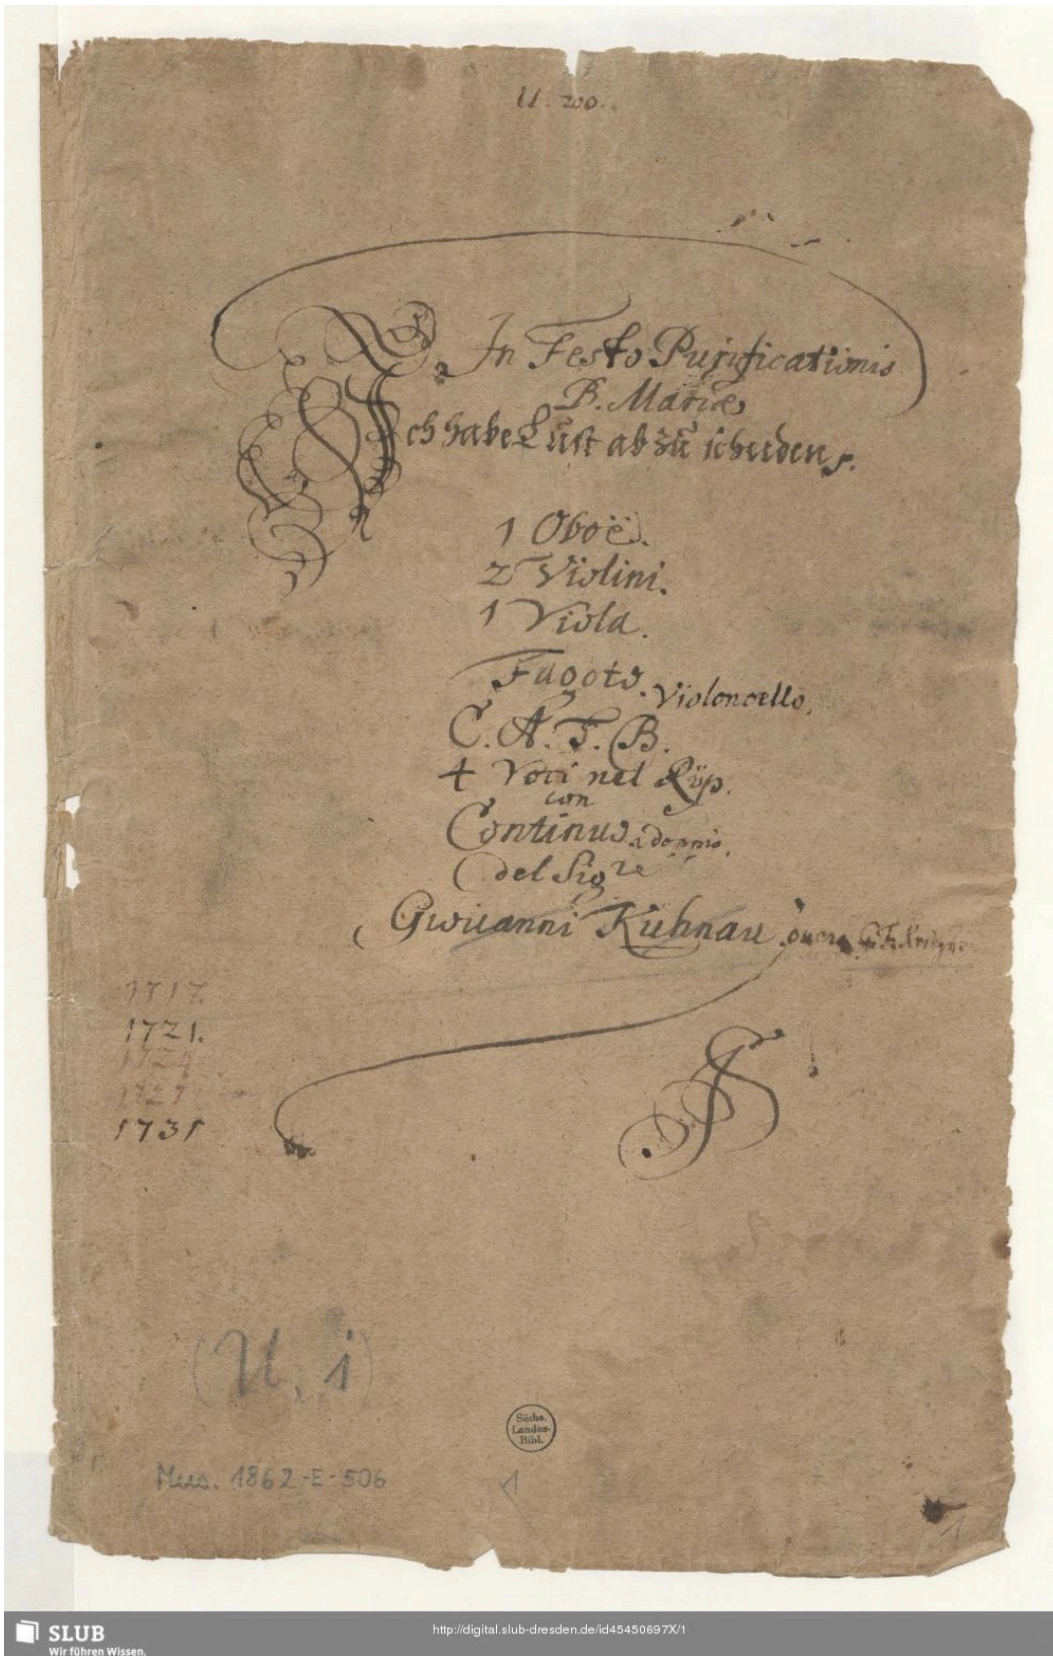 U. 200.
In Festo Purificationis
B. Mariæ
Ich habe Lust abzuscheiden.
1 Oboe.
2 Violini.
1 Viola.
Fagoto. Violoncello.
C. A. T. B.
4 Voci nel Rip.
con
Continuo a doppio.
del Sigre
Giouanni Kuhnau
1717.
1721.
1724
1727
1731
(U. i)
Sächs.
Landes-
Bibl.
Mus. 1862-E-506
1
1
SLUB
Wir führen Wissen.
http://digital.slub-dresden.de/id45450697X/1